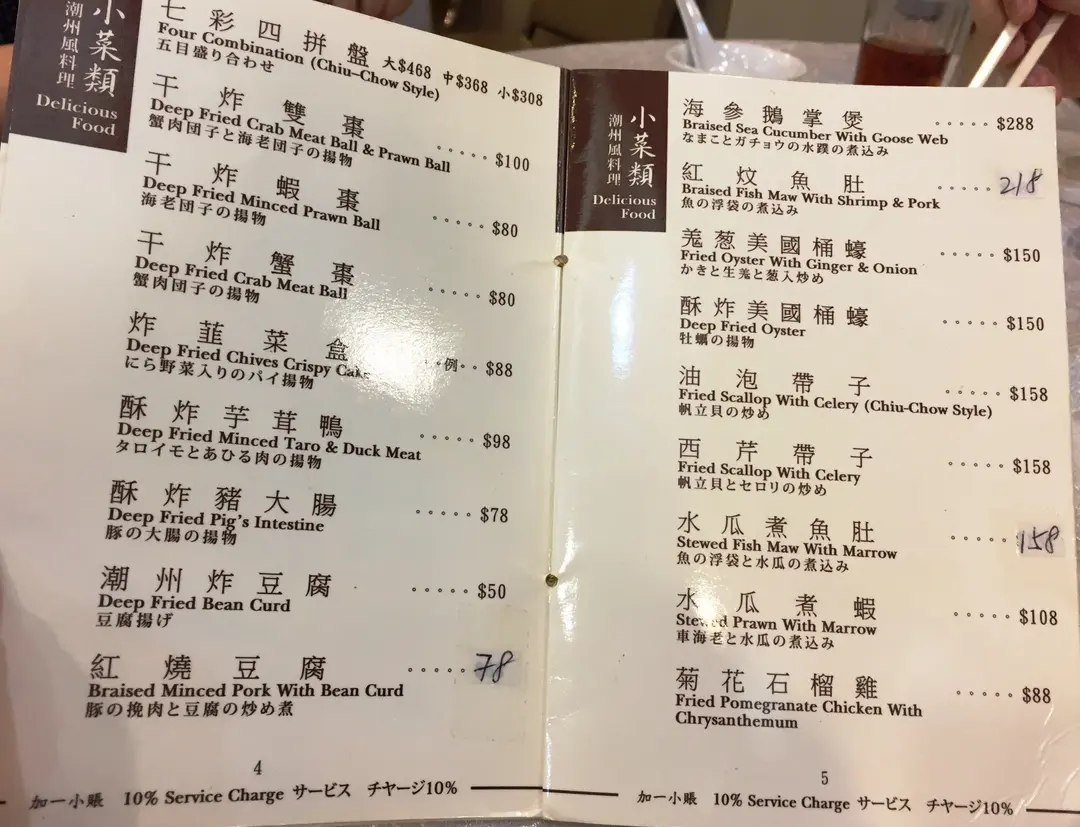 小菜類
潮州風料理
Delicious
Food
七彩四拼盤 大$468 中$368 小$308
Four Combination (Chiu-Chow Style)
五目盛り合わせ
干炸雙棗 $100
Deep Fried Crab Meat Ball & Prawn Ball
蟹肉団子と海老団子の揚物
干炸蝦棗 $80
Deep Fried Minced Prawn Ball
海老団子の揚物
干炸蟹棗 $80
Deep Fried Crab Meat Ball
蟹肉団子の揚物
炸韮菜盒 例 $88
Deep Fried Chives Crispy Cake
にら野菜入りのパイ揚物
酥炸芋茸鴨 $98
Deep Fried Minced Taro & Duck Meat
タロイモとあひる肉の揚物
酥炸豬大腸 $78
Deep Fried Pig's Intestine
豚の大腸の揚物
潮州炸豆腐 $50
Deep Fried Bean Curd
豆腐揚げ
紅燒豆腐 78
Braised Minced Pork With Bean Curd
豚の挽肉と豆腐の炒め煮
4
加一小賬 10% Service Charge サービス チヤージ10%
小菜類
潮州風料理
Delicious
Food
海參鵝掌煲 $288
Braised Sea Cucumber With Goose Web
なまことガチョウの水蹼の煮込み
紅炆魚肚 218
Braised Fish Maw With Shrimp & Pork
魚の浮袋の煮込み
羗葱美國桶蠔 $150
Fried Oyster With Ginger & Onion
かきと生羗と葱入炒め
酥炸美國桶蠔 $150
Deep Fried Oyster
牡蠣の揚物
油泡帶子 $158
Fried Scallop With Celery (Chiu-Chow Style)
帆立貝の炒め
西芹帶子 $158
Fried Scallop With Celery
帆立貝とセロリの炒め
水瓜煮魚肚 158
Stewed Fish Maw With Marrow
魚の浮袋と水瓜の煮込み
水瓜煮蝦 $108
Stewed Prawn With Marrow
車海老と水瓜の煮込み
菊花石榴雞 $88
Fried Pomegranate Chicken With
Chrysanthemum
5
加一小賬 10% Service Charge サービス チヤージ10%